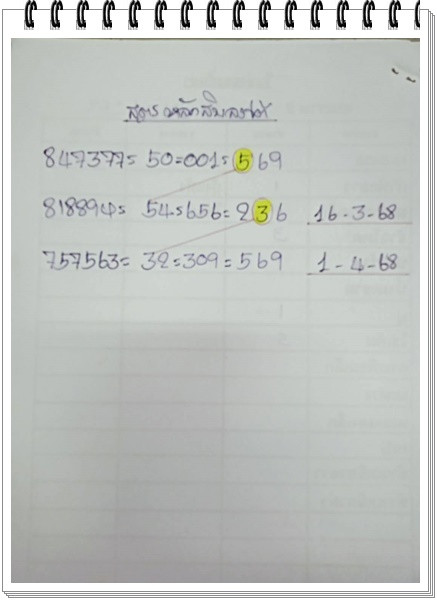 สูตร หลักสิบล่าง
847377= 50=001= 569
818894= 54=656= 236 16-3-68
757563= 32=309=569 1-4-68